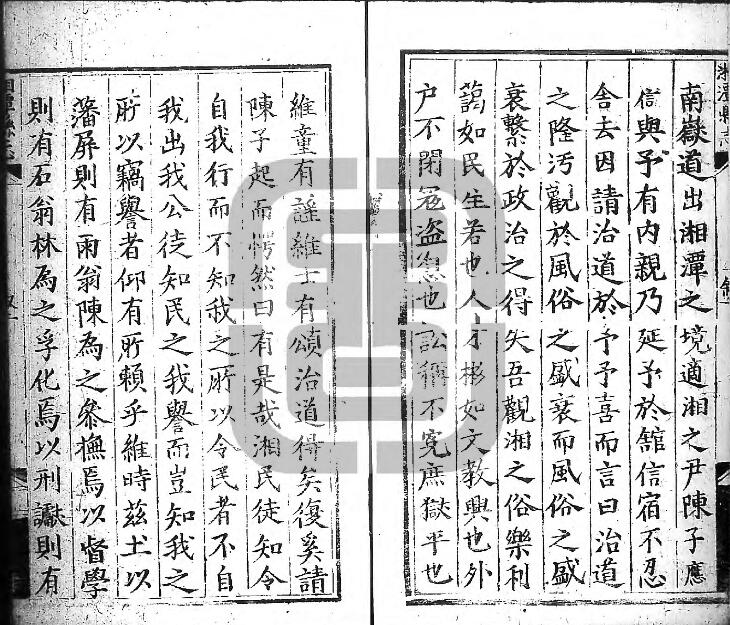 湘潭縣志
南嶽道出湘潭之境適湘之尹陳子應
信與予有內親乃延予於舘信宿不忍
舍去因請治道於予予喜而言曰治道
之隆污觀於風俗之盛衰而風俗之盛
衰繫於政治之得失吾觀湘之俗樂利
藹如民生若也人才彬如文教興也外
户不閉冦盗息也訟稱不寃庶獄平也
維童有謡維士有頌治道得矣復奚請
陳子起而愕然曰有是哉湘民徒知令
自我行而不知我之所以令民者不自
我出我公徒知民之我譽而豈知我之
所以竊譽者仰有所賴乎維時兹土以
藩屏則有雨翁陳為之叅撫焉以督學
則有石翁林為之孚化焉以刑讞則有